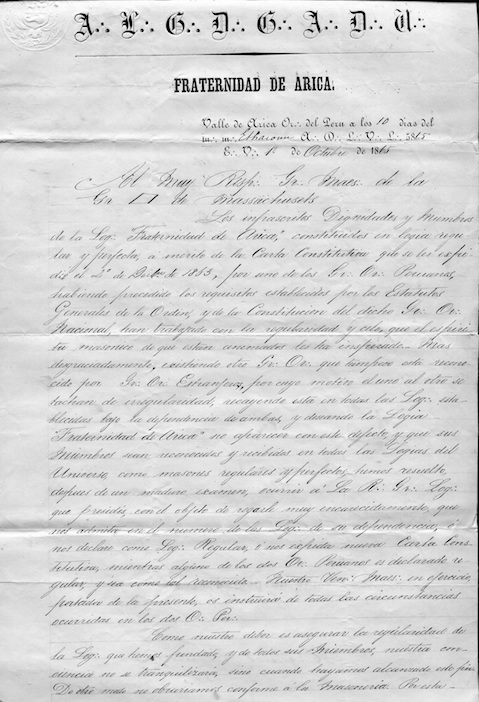 A∴ L∴ G∴ D∴ G∴ A∴ D∴ U∴
FRATERNIDAD DE ARICA.
Valle de Arica Or∴ del Peru a los 10 dias del
m∴ m∴ A∴ D∴ L∴ V∴ L∴ 5865
E∴ V∴ 1º de Octubre de 1865
Al Muy Resp∴ Gr∴ Maes∴ de la
Gr∴ de Massachusets
Los infrascritos Dignidades y Miembros
de la Log∴ "Fraternidad de Arica", constituidos en logia regu
lar y perfecta, a mérito de la Carta Constitutiva que se les expi
dió el 2 de de 1863, por uno de los Gr∴ Or∴ Peruanos,
habiendo precedido los requisitos establecidos por los Estatutos
Generales de la Orden, y de la Constitucion del dicho Gr∴ Or∴
Nacional, han trabajado con la regularidad y celo, que el espiri
tu masonico de que estan animados les ha inspirado. Mas
desgraciadamente, existiendo otro Gr∴ Or∴ que tampoco esta recono
cido por Gr∴ Or∴ Estrangero, por cuyo motivo el uno al otro se
tachan de irregularidad, recayendo esta en todas las Log∴ esta
blecidas bajo la dependencia de ambas, y deseando la Logia
"Fraternidad de Arica" no aparecer con este defecto, y que sus
Miembros sean reconocidos y recibidos en todas las Logias del
Universo, como masones regulares y perfectos, hemos resuelto
despues de un maduro examen, ocurrir á La R∴ Gr∴ Log∴
que presides, con el objeto de rogarle muy encarecidamente, que
nos admita en el numero de las Log∴ de su dependencia, ó
nos declare como Log∴ Regular, ó nos expida nueva Carta Cons
titutiva, mientras alguno de los dos Or∴ Peruanos es declarado re
gular, y sea como tal reconocido. Nuestro Ven∴ Maes∴ en ejercicio,
portador de la presente, os instruirá de todas las circunstancias
ocurridas en los dos O∴ Per∴
Como nuestro deber es asegurar la regularidad de
la Log∴ que hemos fundado, y de todos sus Miembros, nuestra con
ciencia no se tranquilizaria, sino cuando hayamos alcanzado este fin.
De otro modo no obrariamos conforme á la Masoneria. Por esta